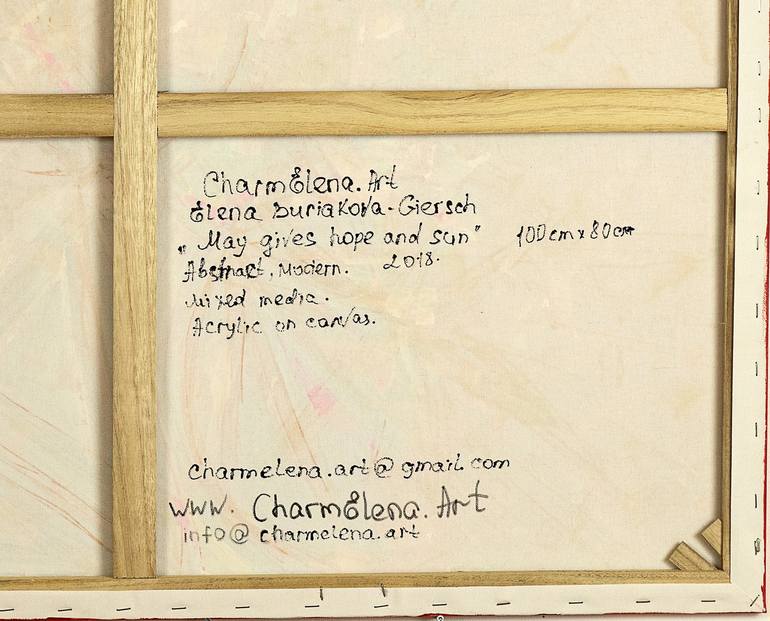 CharmElena.Art
Elena Buriakova-Giersch
„May gives hope and sun" 100cm x 80cm
Abstract, Modern. 2018.
Mixed media.
Acrylic on canvas.
charmelena.art@gmail.com
www. CharmElena.Art
info@charmelena.art